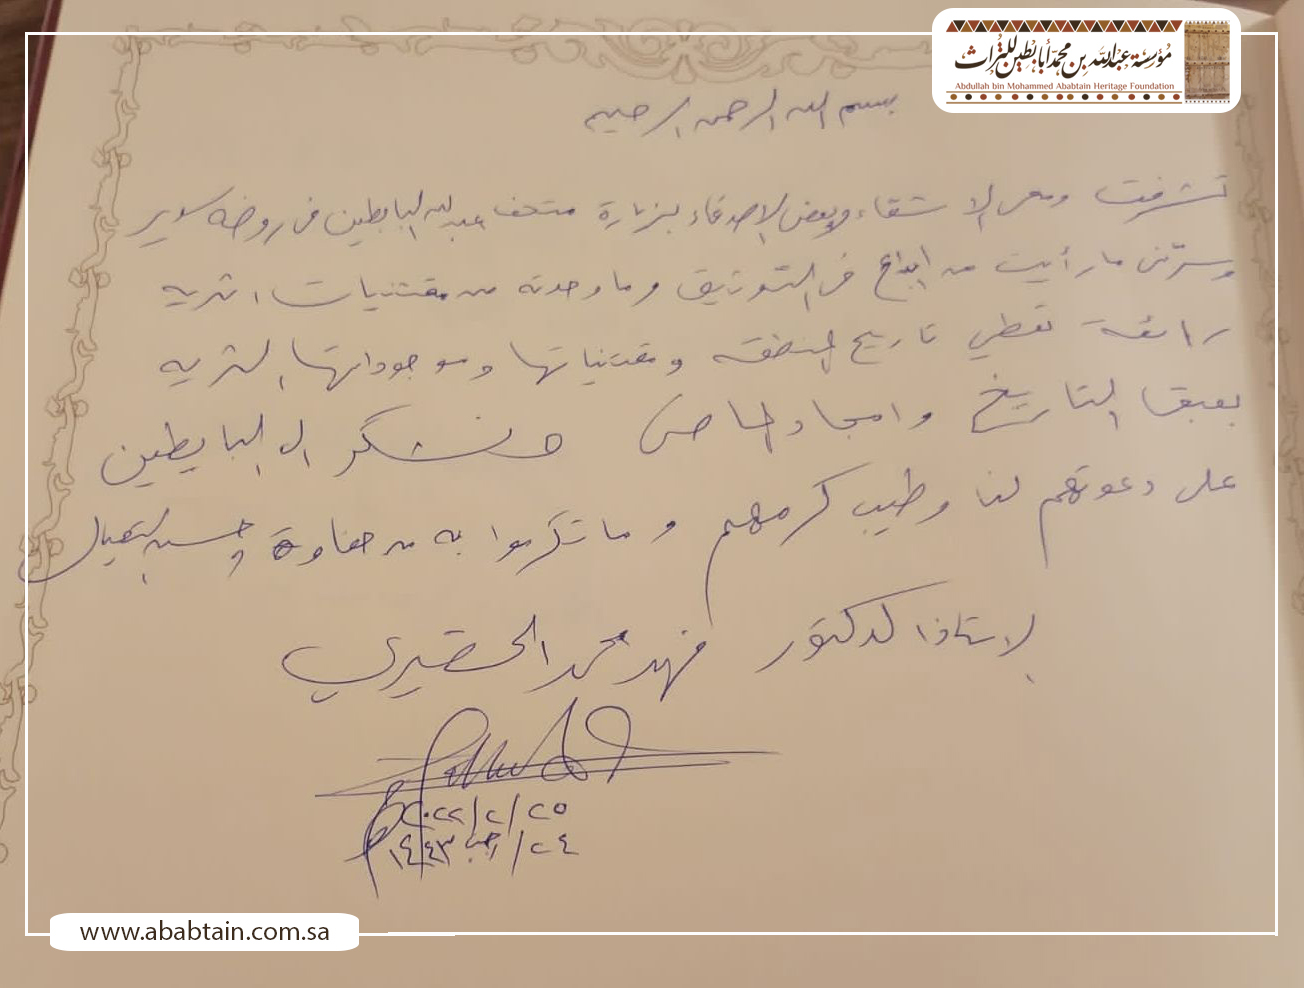 مؤسسة عبدالله بن محمد أبابطين للتراث
Abdullah bin Mohammed Ababtain Heritage Foundation
بسم الله الرحمن الرحيم
تشرفت ومعي الاشقاء وبعض الاصدقاء بزيارة متحف عبدالله البابطين في روضة سدير
وسرّني ما رأيت من ابداع في التوثيق وما وجدته من مقتنيات اثريه
رائعة تغطي تاريخ المنطقه ومقتنياتها وموجوداتها الثريه
بعبق التاريخ وامجاد الماضي ونشكر ال البابطين
على دعوتهم لنا وطيب كرمهم وما تكرموا به من حفاوة وحسن استقبال
الاستاذ الدكتور فهد محمد الخضيري
٢٠٢٢/٢/٢٥
٢٤/ رجب ١٤٤٣
www.ababtain.com.sa